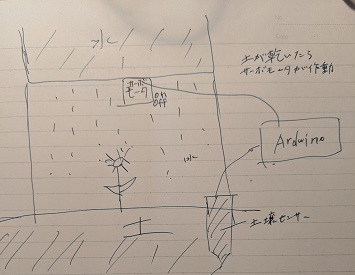 水
土が乾いたら
サーボモータが作動
サーボ
モータ
on
off
Arduino
水
土壌センサー
土